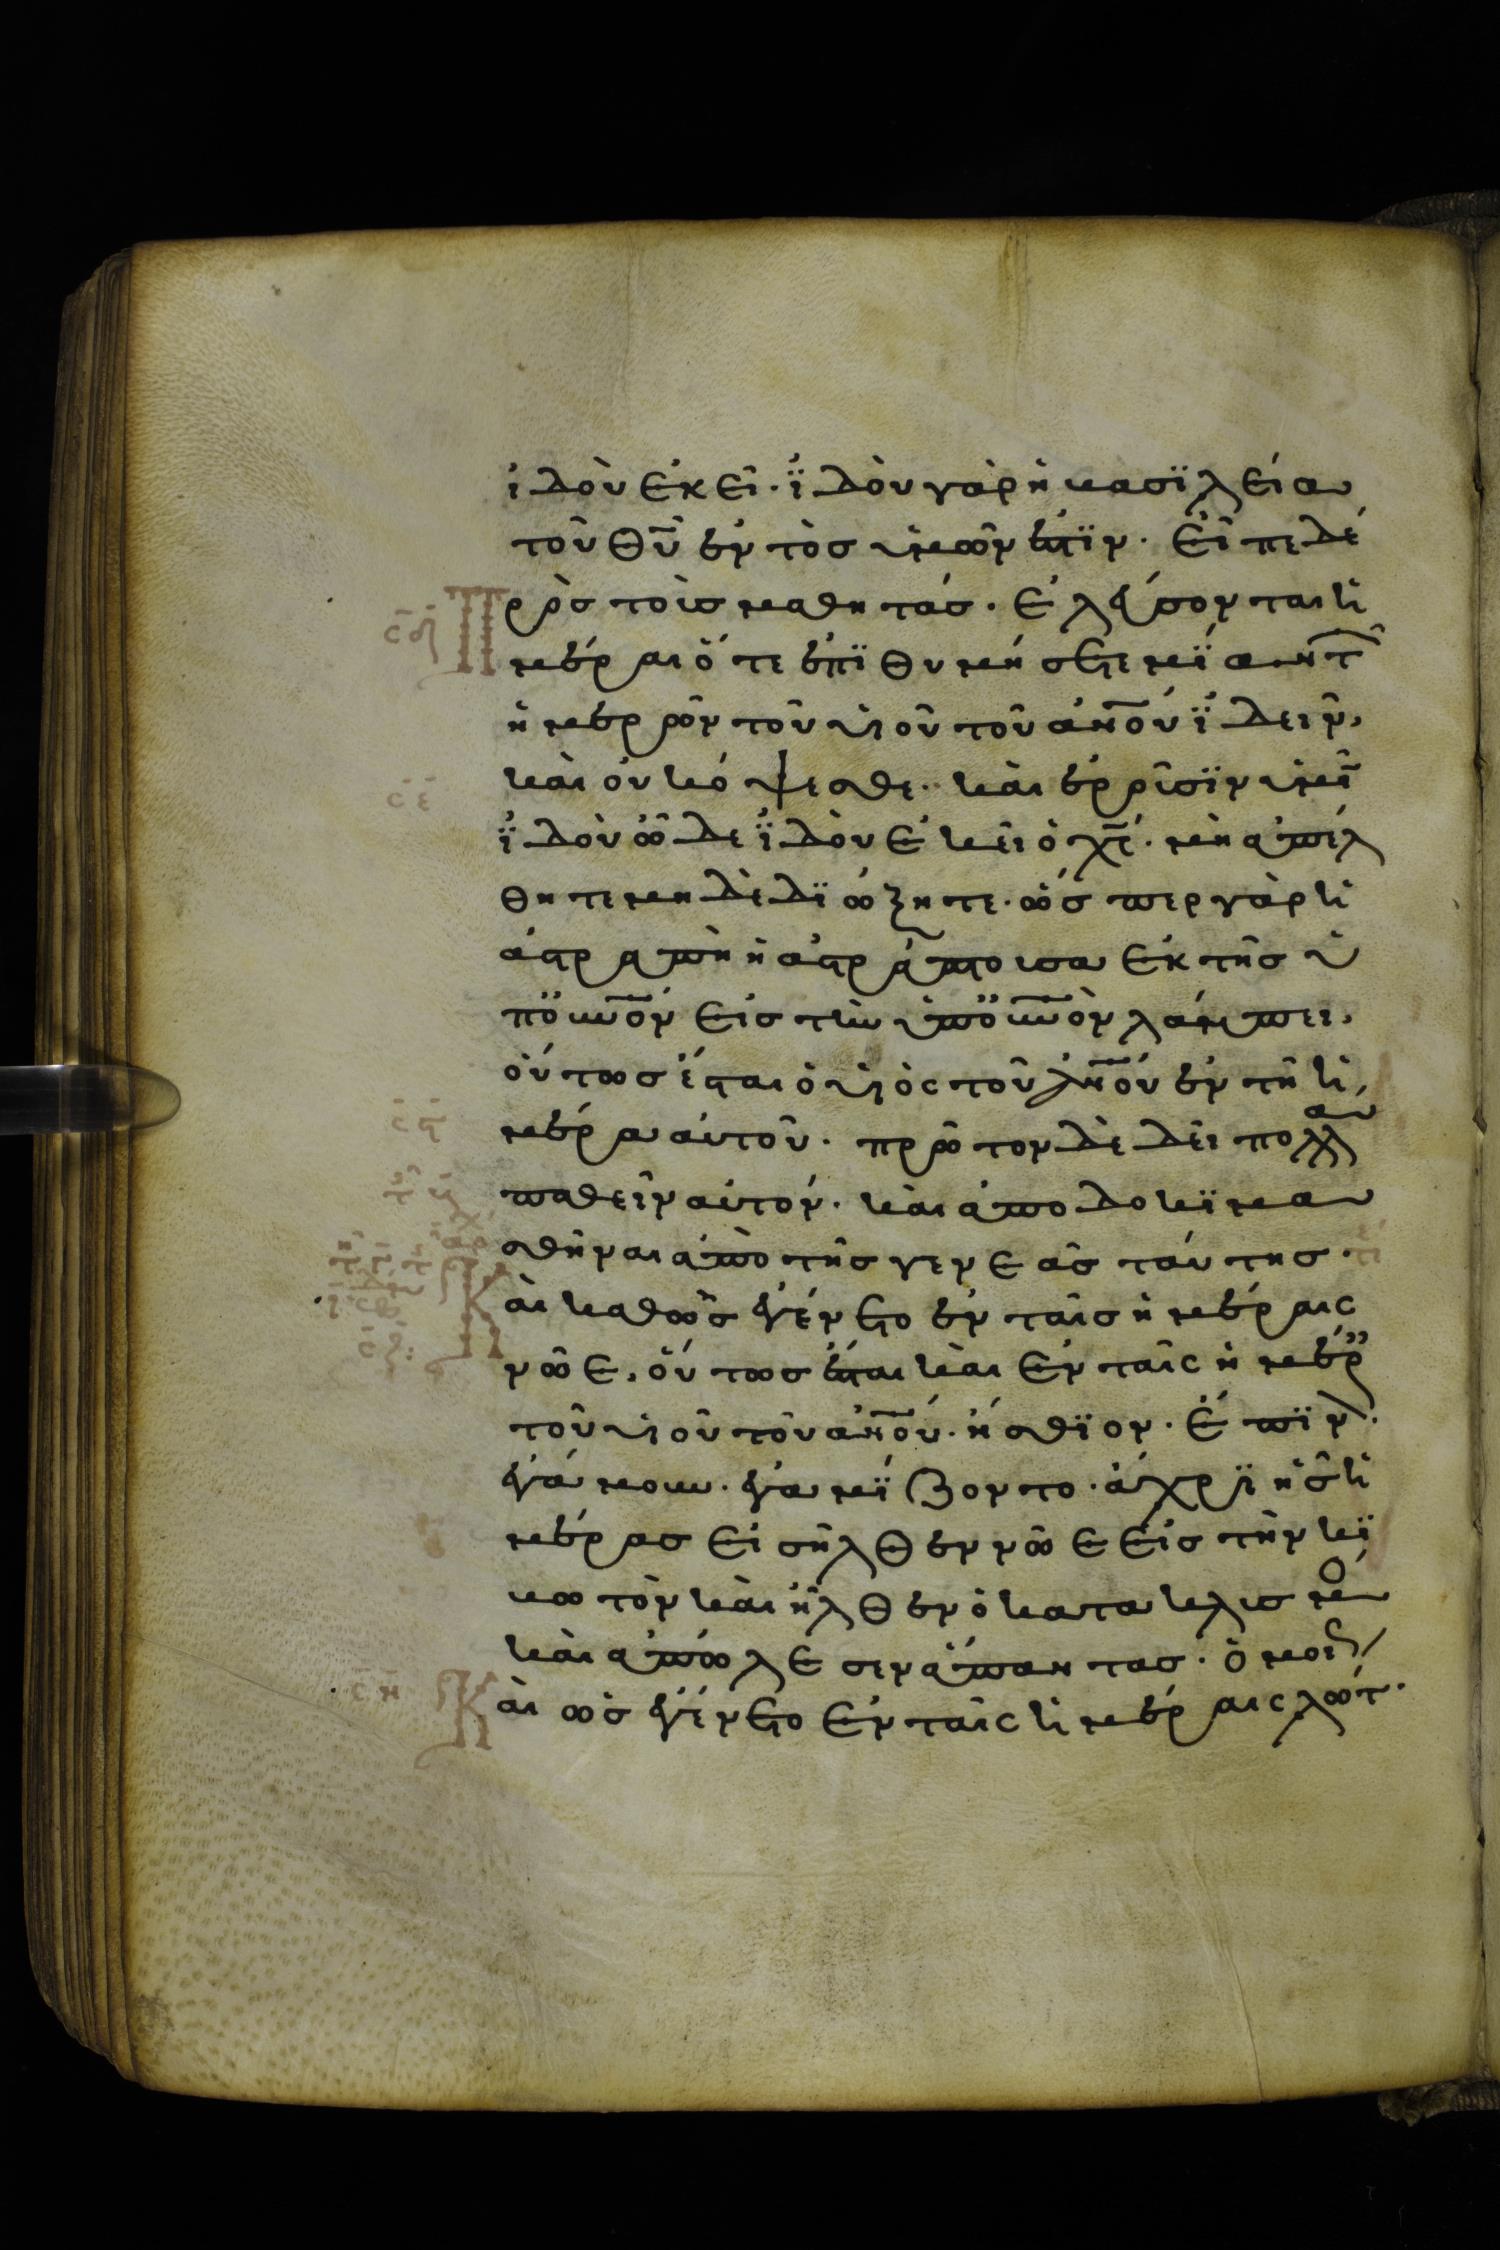 ἰδοὺ ἐκεῖ· ἰδοὺ γὰρ ἡ βασϊλεία
τοῦ θ̅υ̅ ἐντὸσ ὑμῶν ἐστϊν· εἶπε δέ
Πρὸσ τοὺσ μαθητάσ· ἐλεύσονται ἡ
μέραι ὅτε ἐπϊθυμήσετε μϊαν τ
ἡμερῶν τοῦ υἱοῦ τοῦ α̅ν̅ο̅υ̅ ἰδεῖν,
καὶ οὐκ ὄψεσθε· καὶ ἐρροῦσϊν ὑμῖ
ἰδοὺ ὧδε ἰδοὺ ἐκεῖ ὁ χ̅ς̅· μὴ ἀπέλ
θητε μηδὲ δϊώξητε· ὥσπερ γὰρ ἡ
ἀστραπὴ ἡ ἀστράπτουσα ἐκ τῆσ ὑ
π ο̅υ̅ν̅ο̅ν̅ εἰσ τὴν ὑπ ο̅υ̅ν̅ο̅ν̅ λάμπει,
οὕτωσ ἔσται ὁ υἱὸσ τοῦ α̅ν̅ο̅υ̅ ἐν τῆ ἡ
μέρα αὐτοῦ· πρῶτον δὲ δεῖ πολλὰ
παθεῖν αὐτόν· καὶ ἀποδοκϊμα
σθῆναι ἀπὸ τῆσ γενεᾶσ ταύτησ·
Καὶ καθὼσ ἐγένετο ἐν ταῖσ ἡμέραισ
νῶε, οὕτωσ ἔσται καὶ ἐν ταῖσ ἡμέρ
τοῦ υἱοῦ τοῦ α̅ν̅ο̅υ̅· ἤσθϊον· ἔπϊν·
ἐγάμουν· ἐγαμϊζοντο· ἄχρϊ ἧσ ἡ
μέρασ εἰσῆλθεν νῶε εἰσ τὴν κϊ
βωτὸν καὶ ἦλθεν ὁ κατακλισμὸ
καὶ ἀπώλεσεν ἅπαντασ· ὁμοι
Καὶ ὡσ ἐγένετο ἐν ταῖσ ἡμέραισ λώτ·